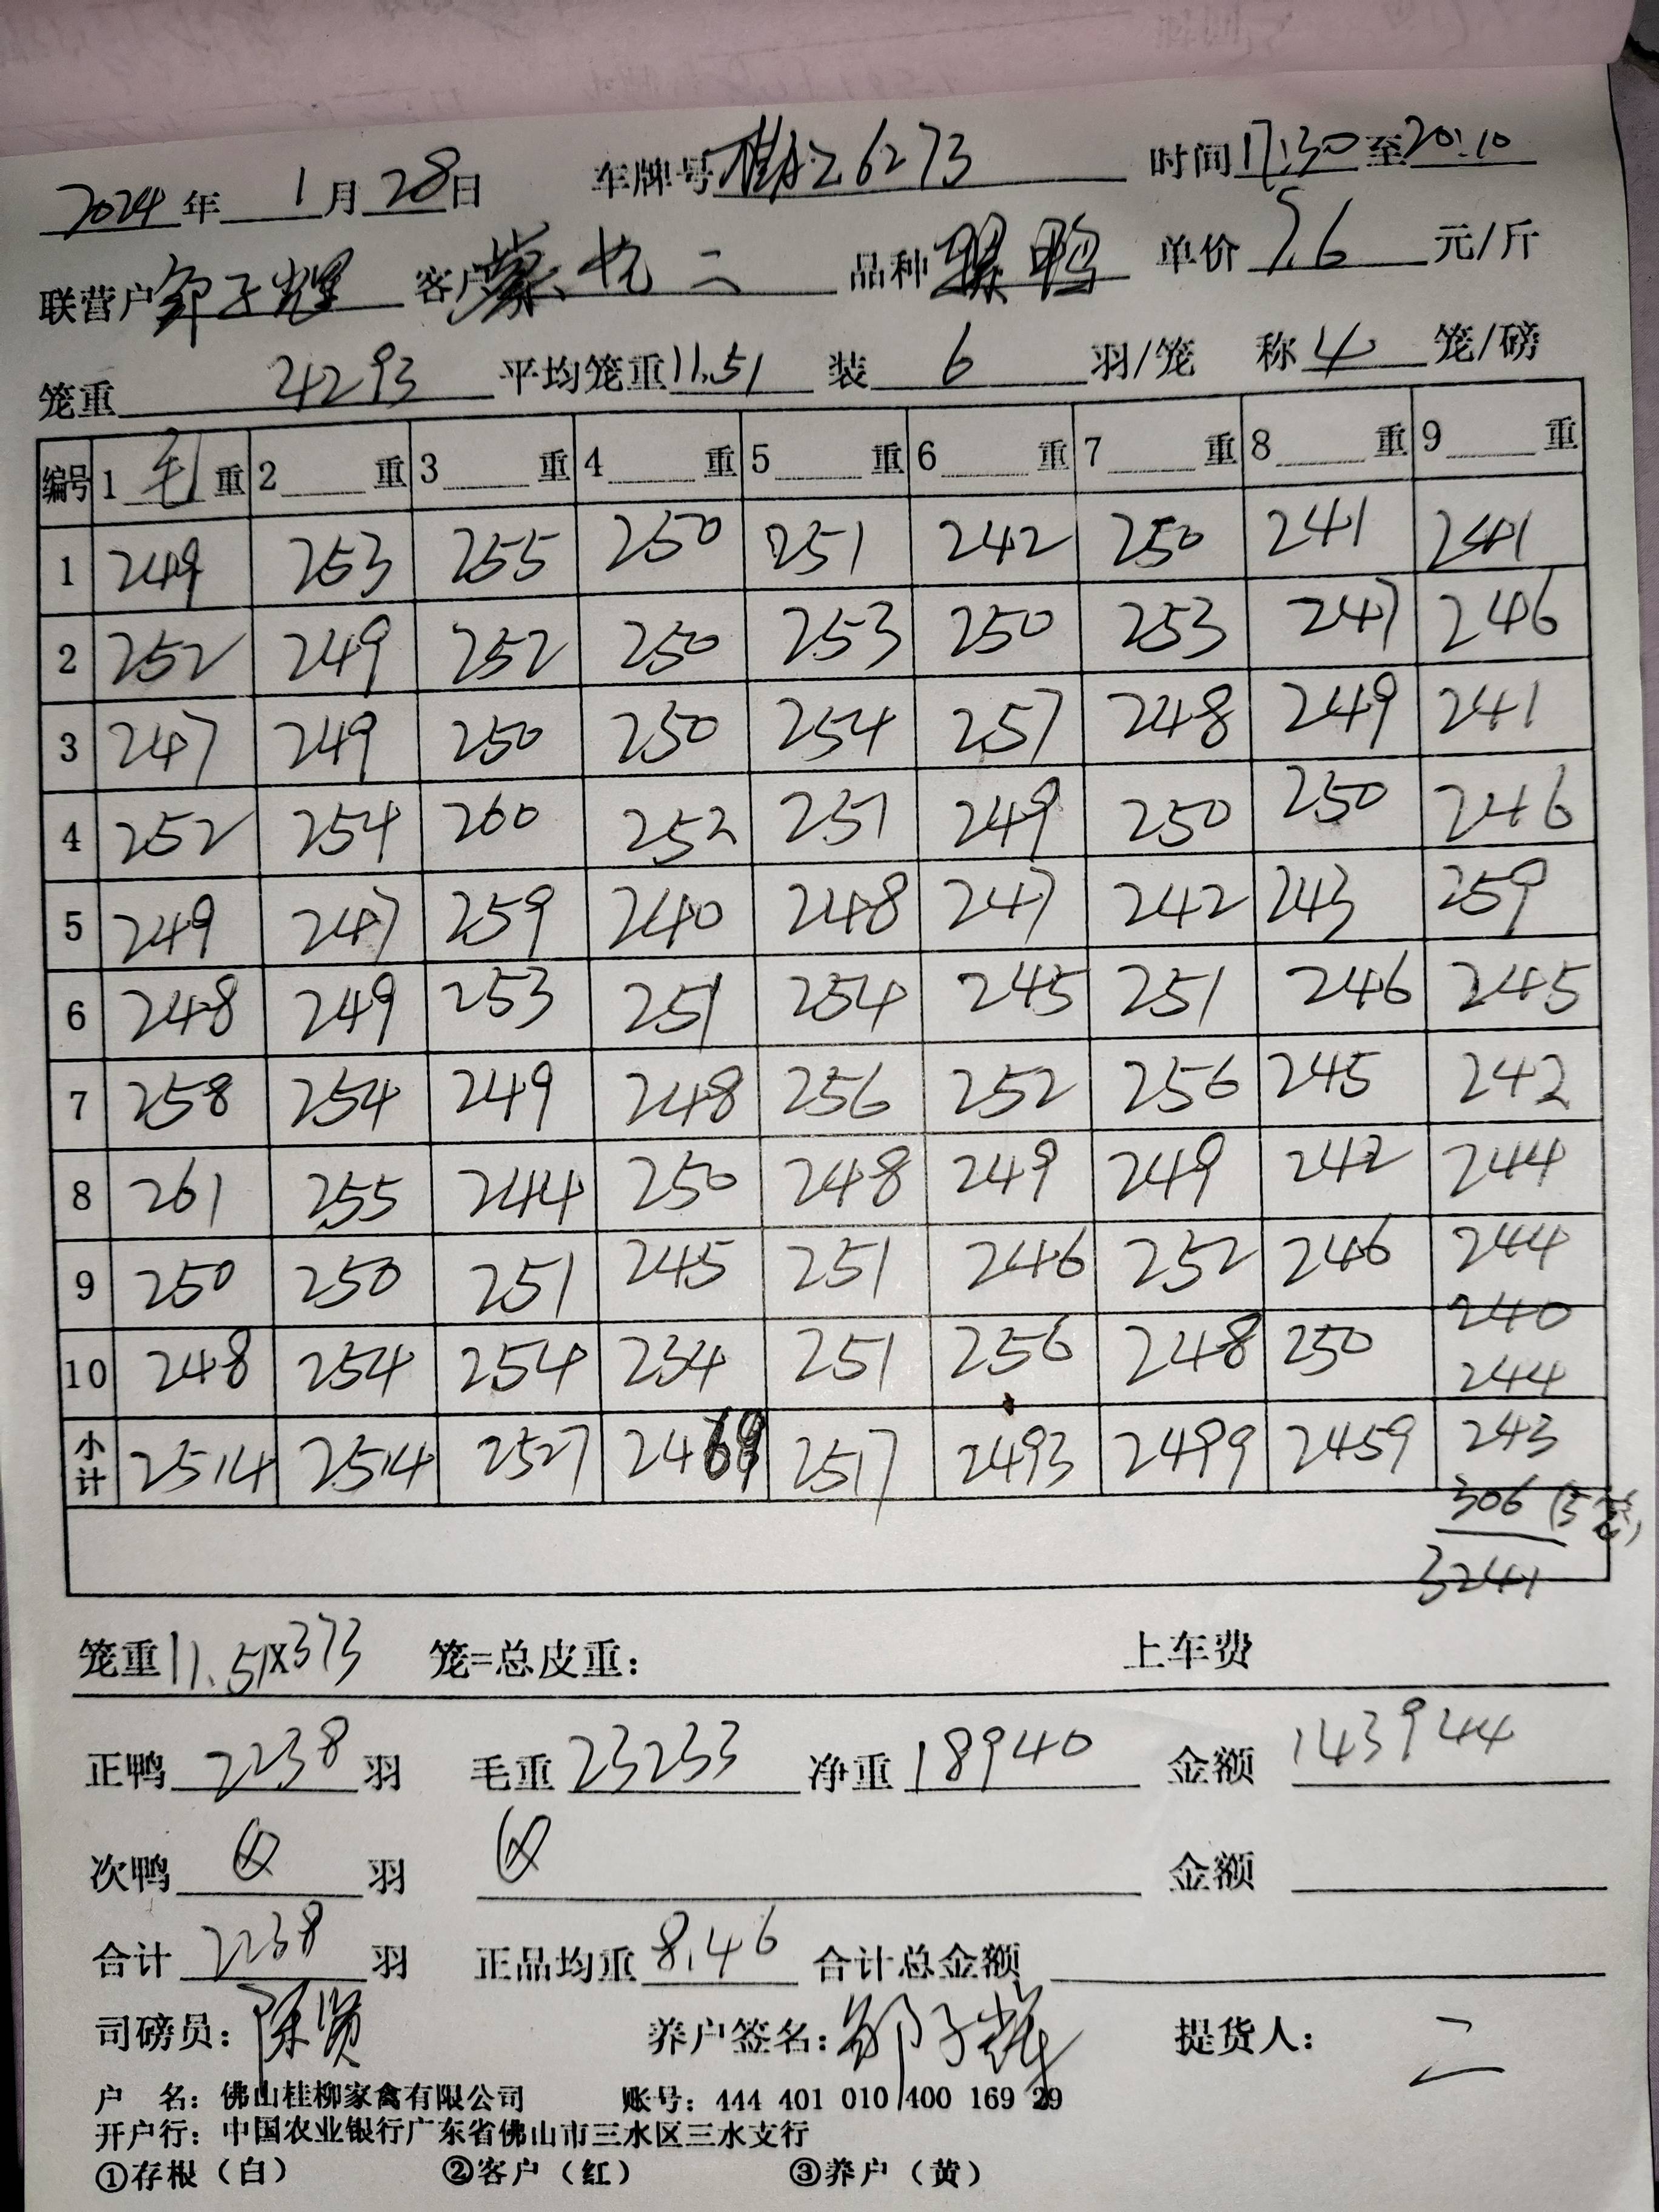 2024年 1月28日 车牌号 桂A26273 时间17:30至20:10
联营户 邹子辉 客户 二 品种 骡鸭 单价 7.6 元/斤
笼重 4293 平均笼重11.51 装 6 羽/笼 称 4 笼/磅
编号 1 毛 重 2 重 3 重 4 重 5 重 6 重 7 重 8 重 9 重
1 249 253 255 250 251 242 250 241 241
2 252 249 252 250 253 250 253 247 246
3 247 249 250 250 254 257 248 249 241
4 252 254 260 252 251 249 250 250 246
5 249 247 259 240 248 247 242 243 259
6 248 249 253 251 254 245 251 246 245
7 258 254 249 248 256 252 256 245 242
8 261 255 244 250 248 249 249 242 244
9 250 250 251 245 251 246 252 246 244
240
10 248 254 254 234 251 256 248 250 244
小计 2514 2514 2527 2469 2517 2493 2499 2459 243
306 (5笼)
3241
笼重11.51X373 笼=总皮重: 上车费
正鸭 2238 羽 毛重 23233 净重 18940 金额 143944
次鸭 羽 金额
合计 2238 羽 正品均重 8.46 合计总金额
司磅员: 陈贤 养户签名: 邹子辉 提货人: 二
户 名: 佛山桂柳家禽有限公司 账号: 444 401 010 400 169 29
开户行: 中国农业银行广东省佛山市三水区三水支行
①存根（白） ②客户（红） ③养户（黄）